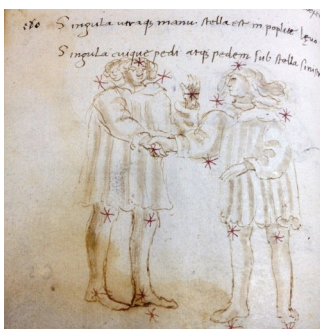 Singula utraq; manu stella est in poplite lęuo
Singula cuique pedi atq; pedem sub stella